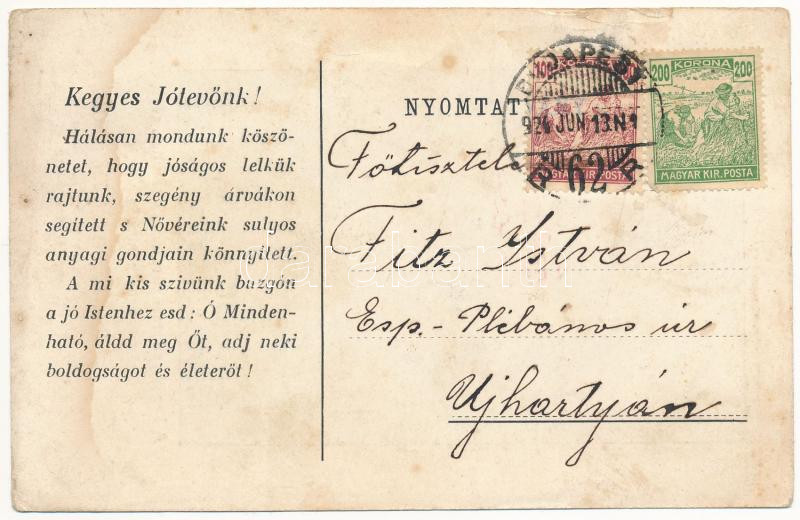 Kegyes Jótevőnk!
Hálásan mondunk köszö-
netet, hogy jóságos lelkük
rajtunk, szegény árvákon
segített s Nővéreink sulyos
anyagi gondjain könnyített.
A mi kis szivünk buzgón
a jó Istenhez esd: Ó Minden-
ható, áldd meg Őt, adj neki
boldogságot és életerőt!
NYOMTAT
100 KORONA
MAGYAR KIR. POSTA
200 KORONA 200
MAGYAR KIR. POSTA
BUDAPEST
924 JUN 13
62
Főtisztel
Fitz István
Esp.- Plébános úr
Ujhartyán
darabanth